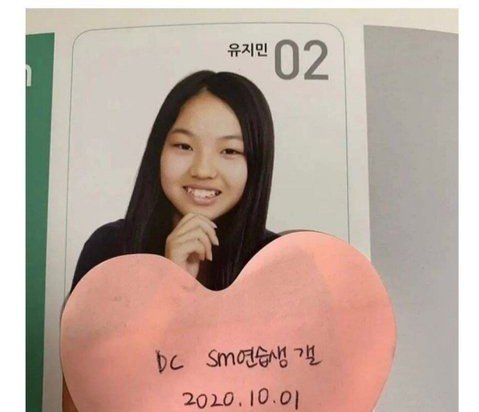 유지민 02
DC sm연습생 갤
2020.10.01